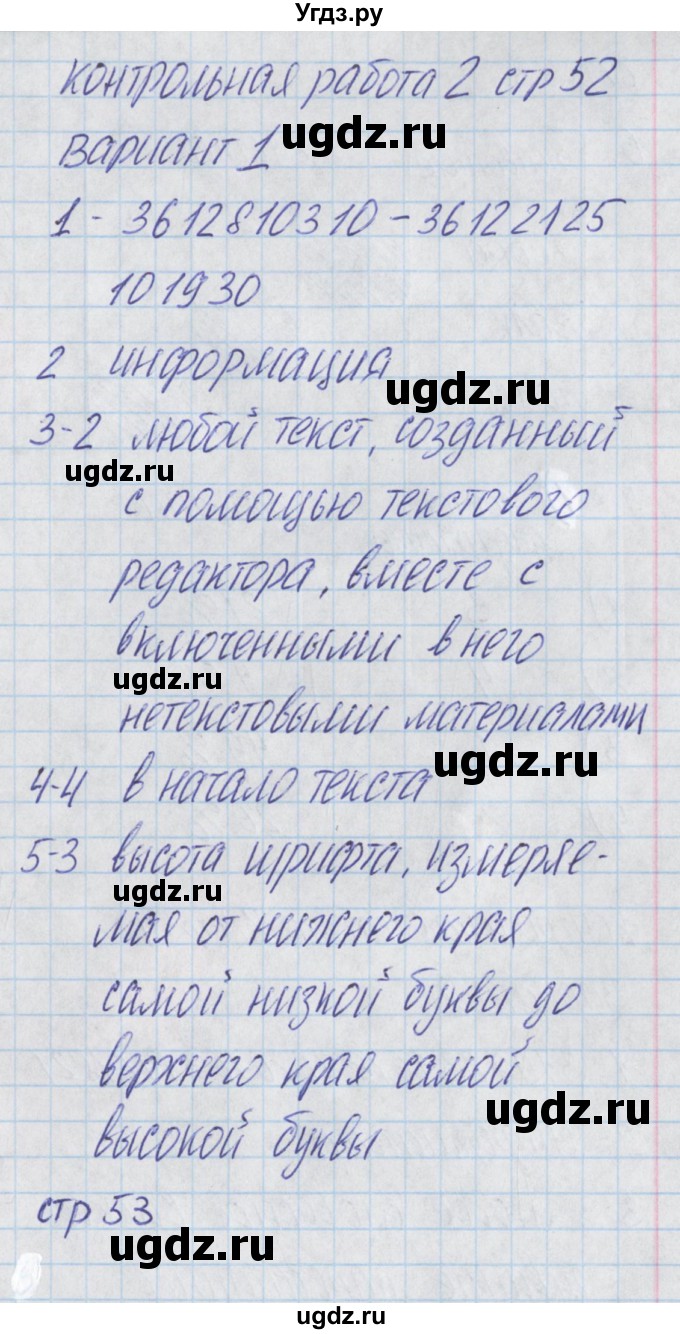 Угдз.ру
контрольная работа 2 стр 52
вариант 1
ugdz.ru
1 - 3612810310 - 36122125
101930
2 информация
ugdz.ru
3-2 любой текст, созданный
ugdz.ru
с помощью текстового
редактора, вместе с
включенными в него
ugdz.ru
нетекстовыми материалами
ugdz.ru
4-4 в начало текста
5-3 высота шрифта, измеряе-
ugdz.ru
мая от нижнего края
самой низкой буквы до
верхнего края самой
ugdz.ru
высокой буквы
стр 53
ugdz.ru
ugdz.ru